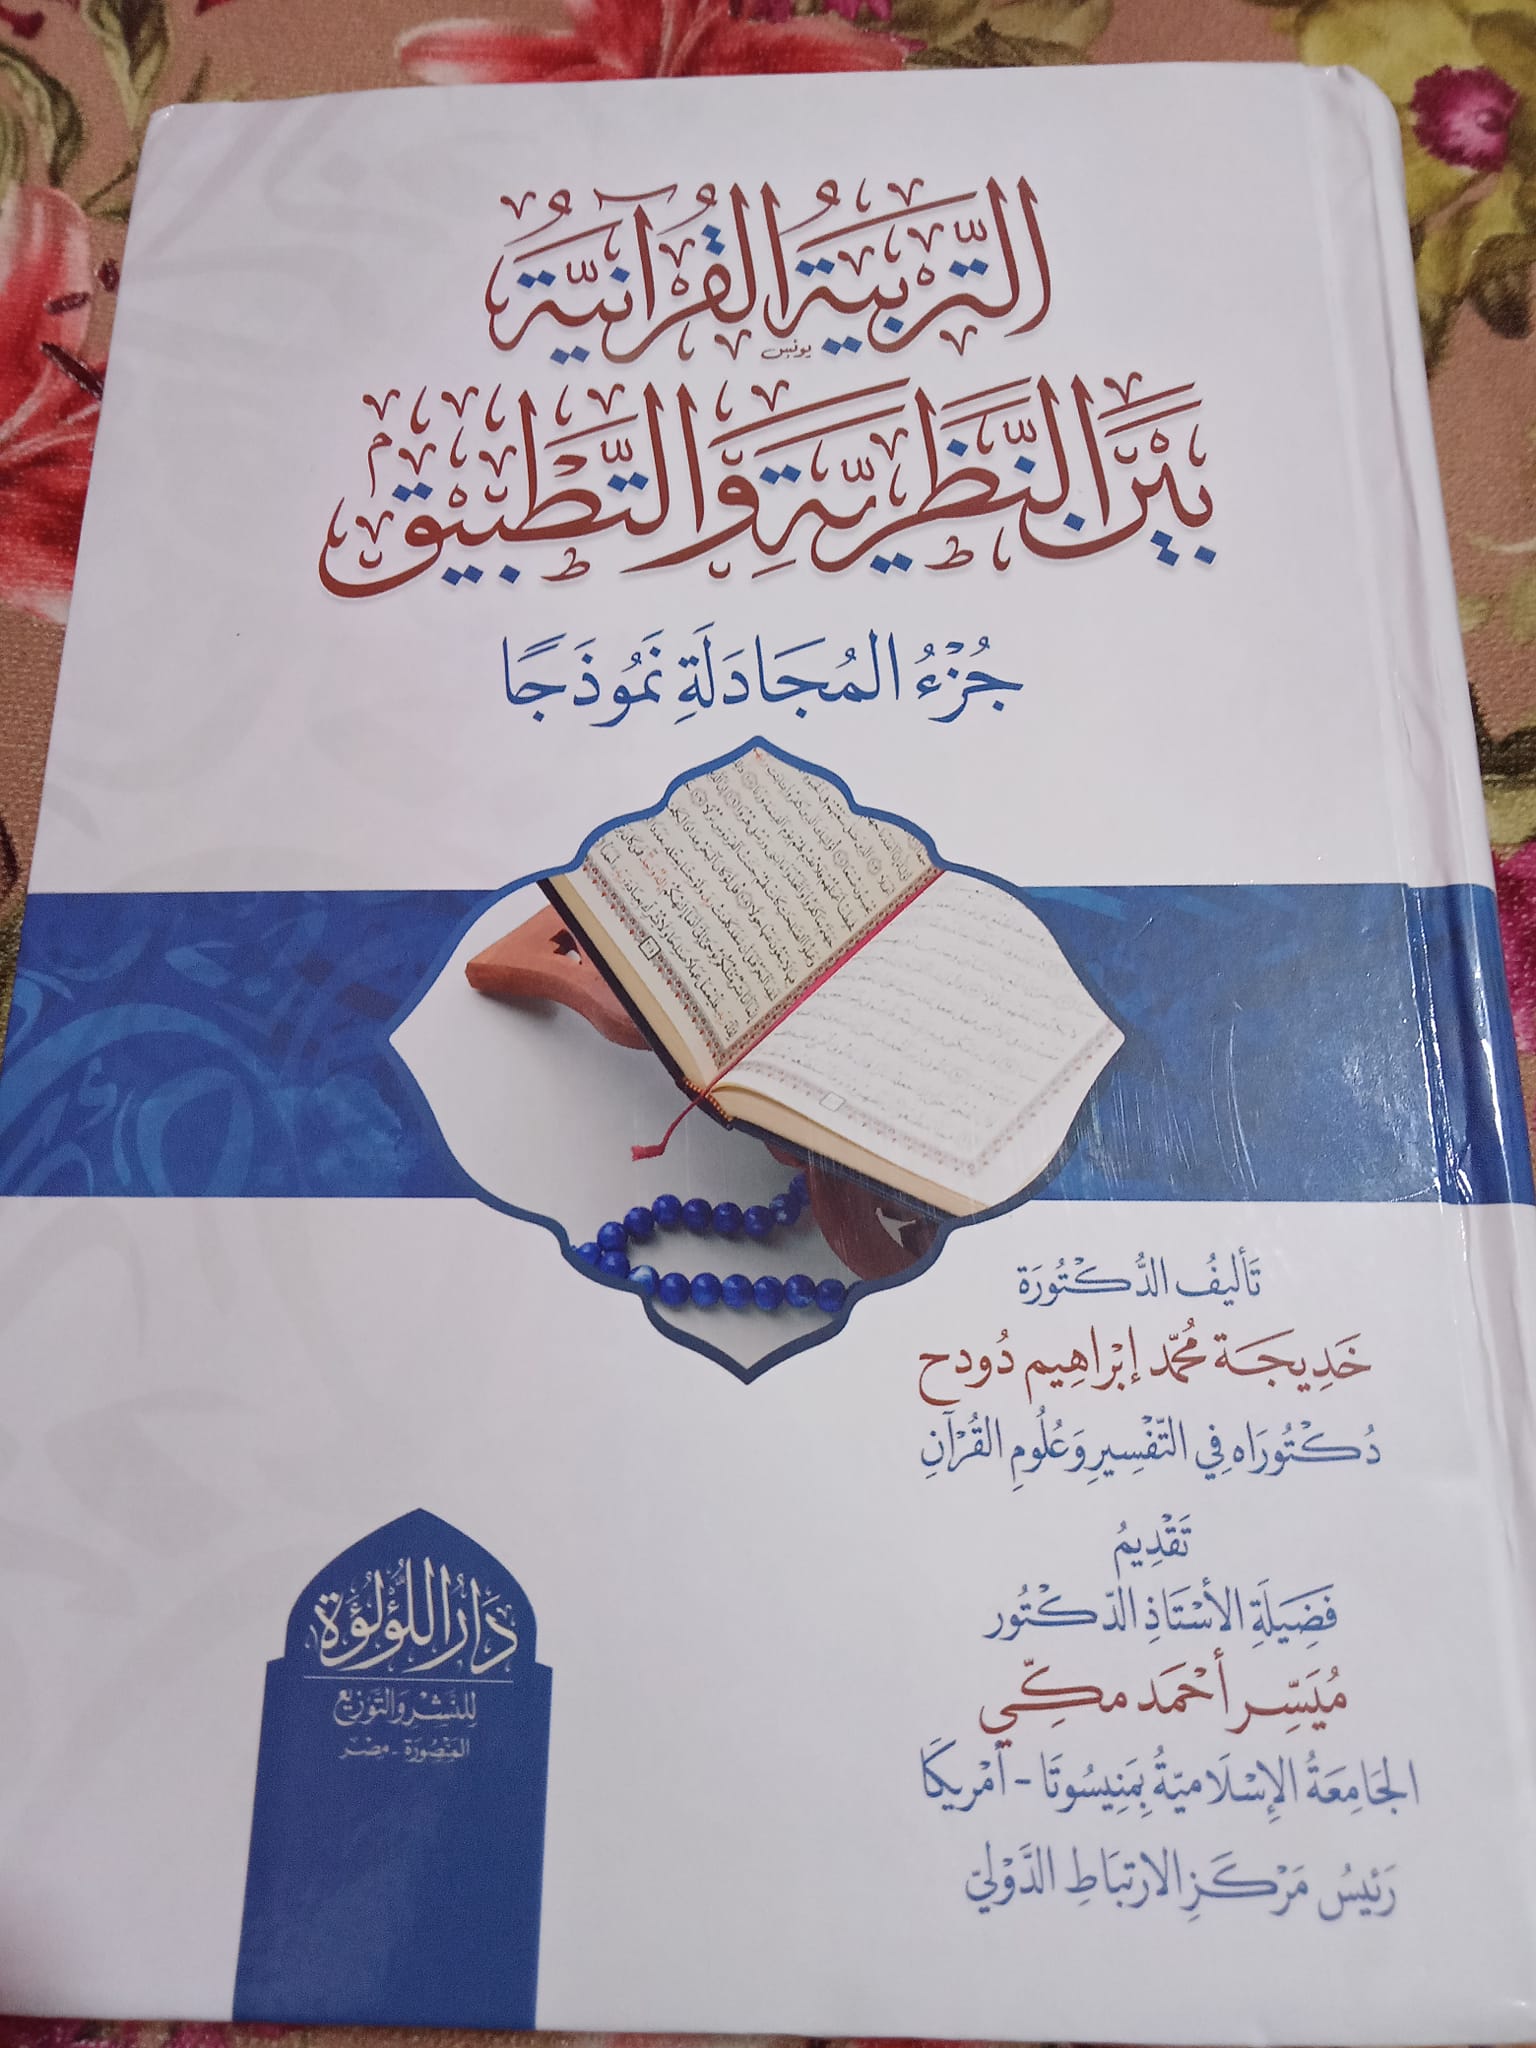 التَّرْبِيَةُ الْقُرْآنِيَّةُ
يونس
بَيْنَ النَّظَرِيَّةِ وَالتَّطْبِيقِ
جُزْءُ المُجَادَلَةِ نَمُوذَجًا
تَأليفُ الدُّكْتُورَة
خَدِيجَة مُحمَّد إبْرَاهِيم دُودح
دُكْتُورَاه فِي التَّفْسِيرِ وَعُلُومِ القُرْآنِ
تَقْدِيمُ
فَضِيلَةِ الأُسْتَاذِ الدّكْتُور
مُيَسِّر أحْمَد مكِّي
الجَامِعَةُ الإِسْلَاميّةُ بِمَنِيسُوتَا - أمْريكَا
رَئيسُ مَرْكَزِ الارتبَاطِ الدَّوْليّ
دَارُ اللُّؤْلُؤَة
لِلنَّشْرِ وَالتَّوْزِيع
المَنْصُورَة - مِصْر